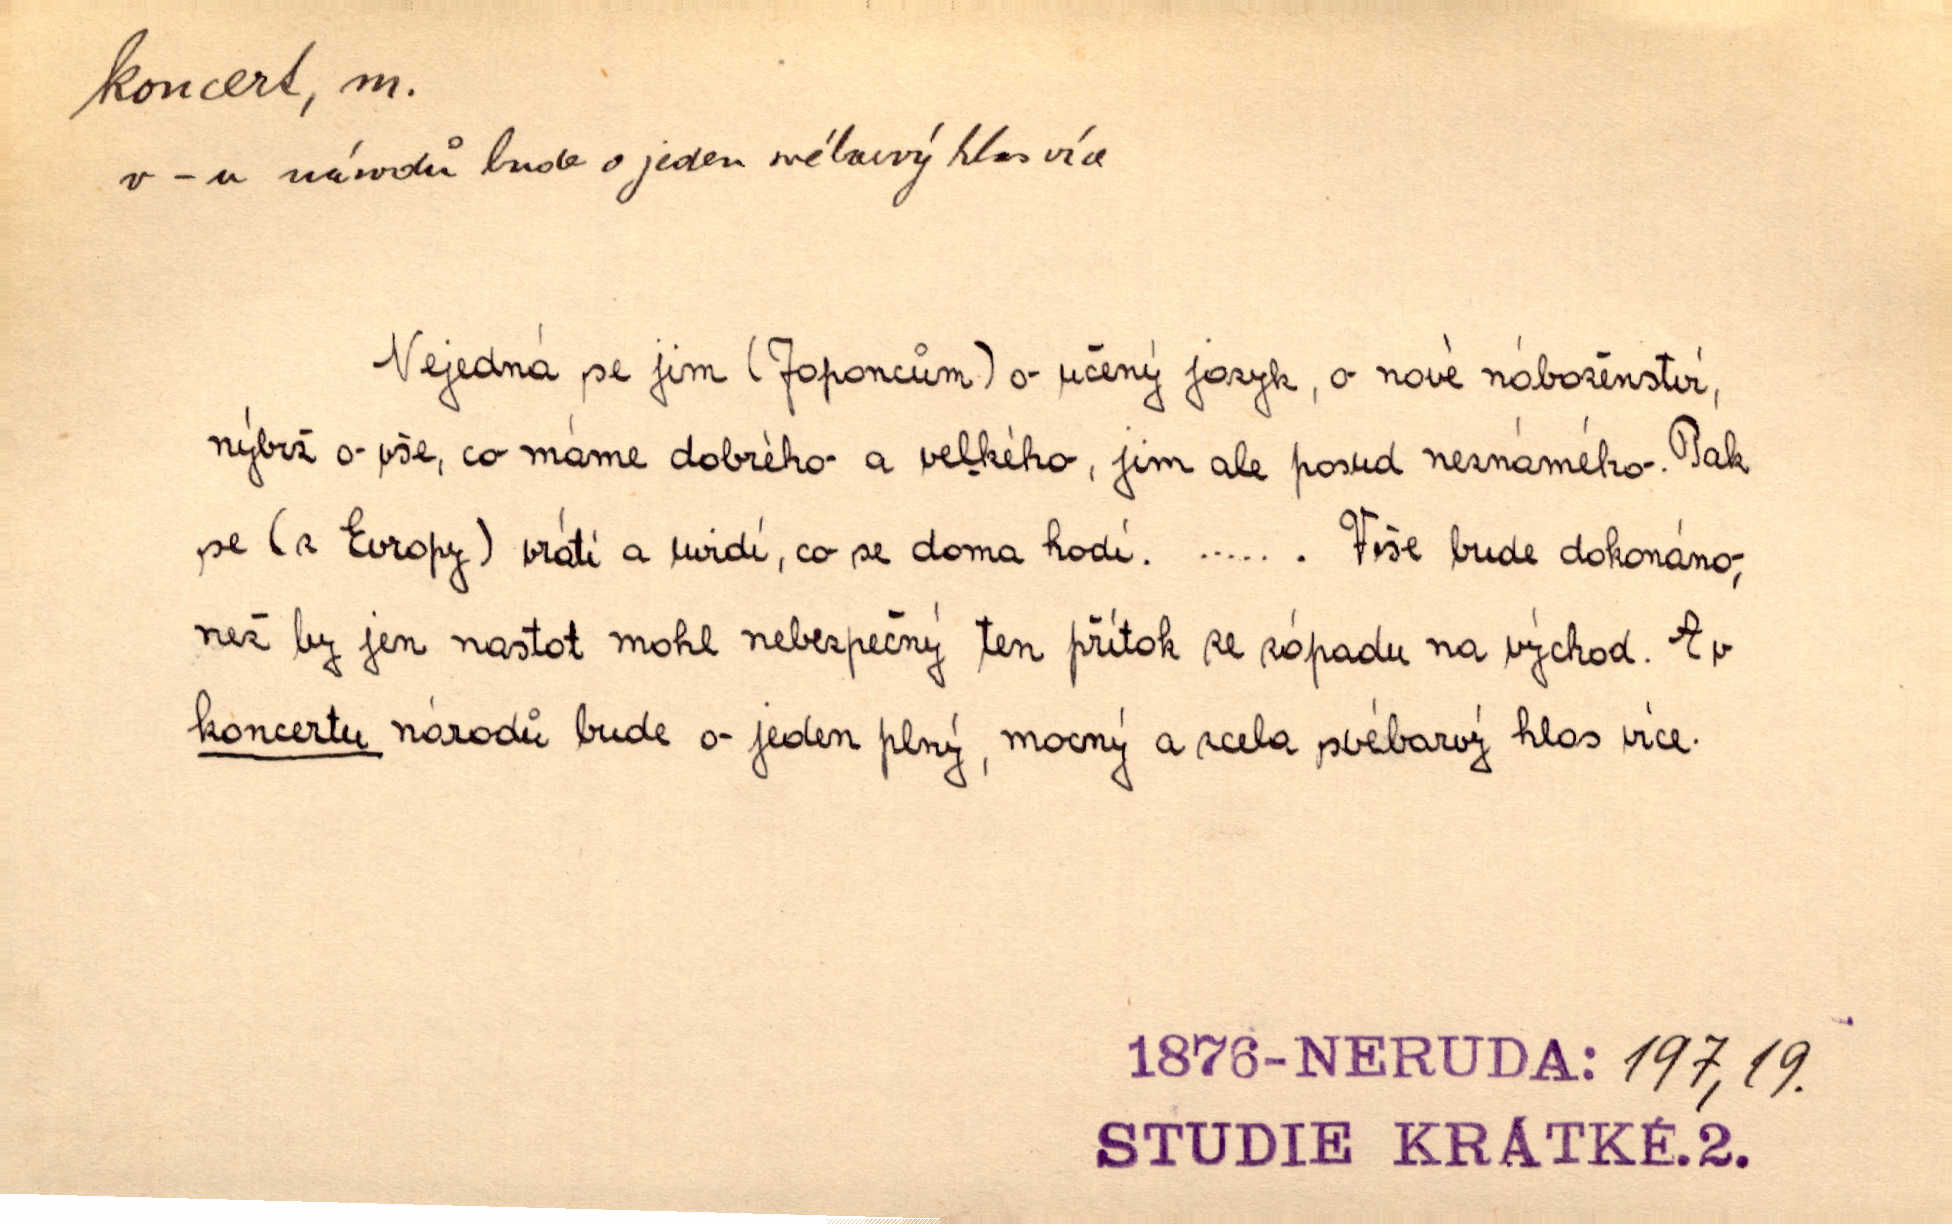 koncert, m.
v -u národů bude o jeden svébarvý hlas více
Nejedná se jim (Japoncům) o učený jazyk, o nové náboženství,
nýbrž o vše, co máme dobrého a veľkého, jim ale posud neznámého. Pak
se (z Evropy) vrátí a uvidí, co se doma hodí. ...... Vše bude dokonáno,
než by jen nastat mohl nebezpečný ten přítok ze západu na východ. A v
koncertu národů bude o jeden plný, mocný a zcela svébarvý hlas více.
1876-NERUDA: 197, 19.
STUDIE KRÁTKÉ.2.